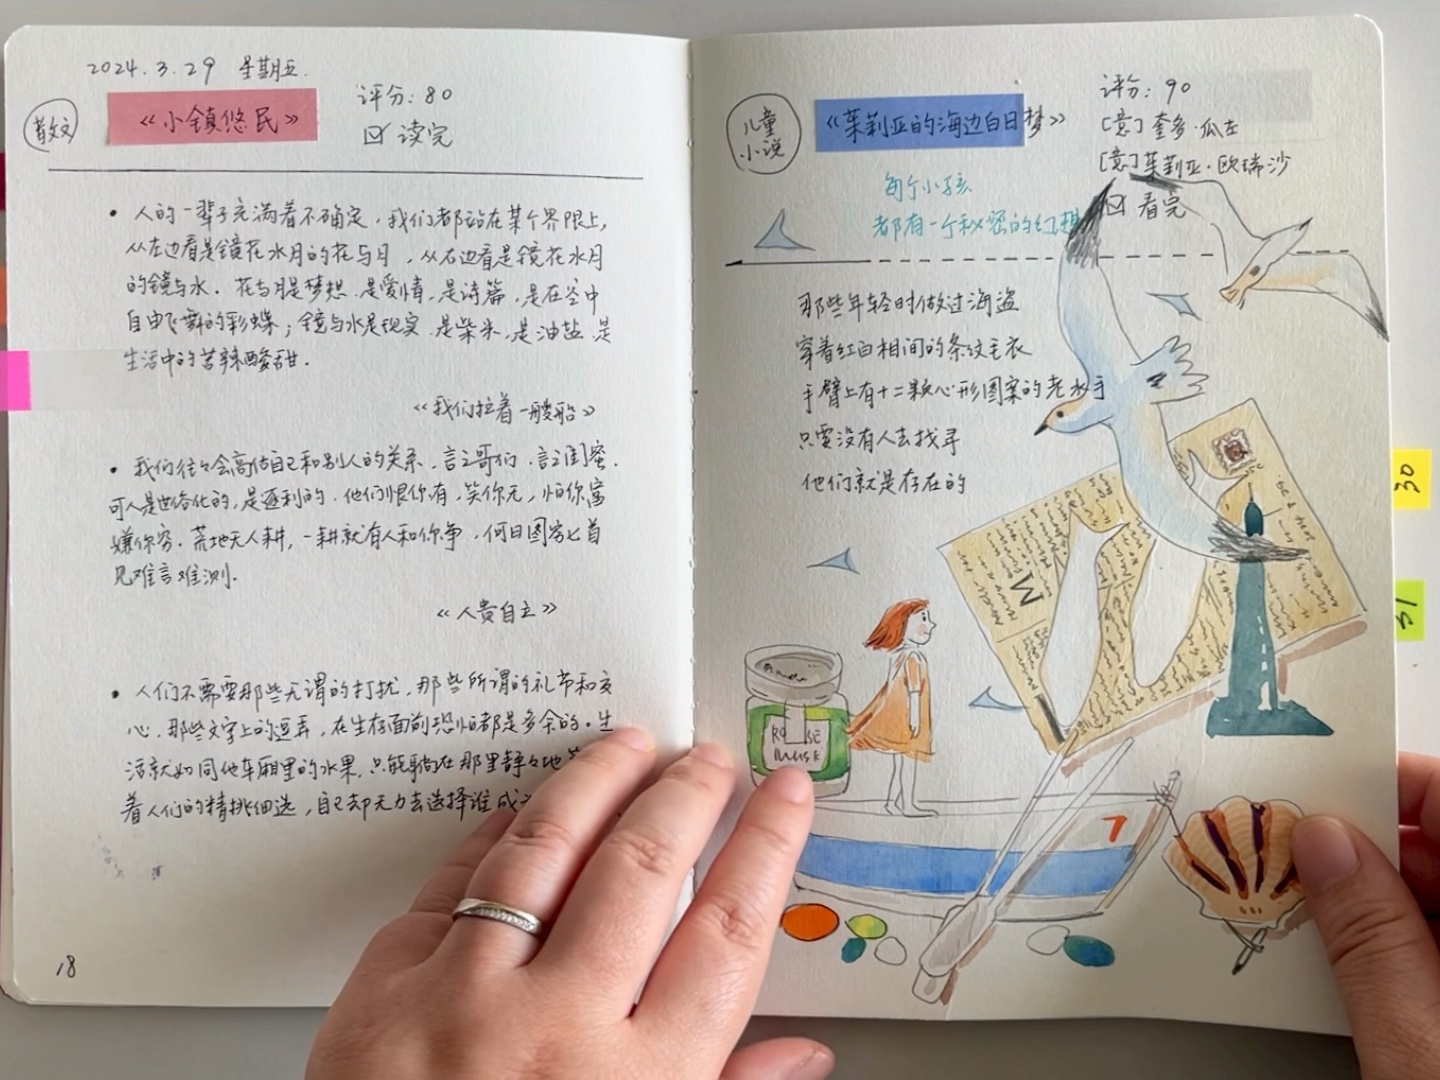 2024.3.29 星期五.
散文
《小镇悠民》
评分: 80
☑ 读完
• 人的一辈子充满着不确定,我们都站在某个界限上,
从左边看是镜花水月的花与月,从右边看是镜花水月
的镜与水. 花与月是梦想,是爱情,是诗篇,是在空中
自由飞舞的彩蝶;镜与水是现实,是柴米,是油盐,是
生活中的苦辣酸甜.
《我们拉着一艘船》
• 我们往往会高估自己和别人的关系,言之哥们,言之闺蜜.
可人是世俗化的,是逐利的,他们恨你有,笑你无,怕你富
嫌你穷. 荒地无人耕,一耕就有人和你争,何日图穷匕首
见难言难测.
《人贵自立》
• 人们不需要那些无谓的打扰,那些所谓的礼节和交
心,那些文字上的逗弄,在生存面前恐怕都是多余的.生
活就如同他车厢里的水果,只能躺在那里静々地等
着人们的精挑细选,自己却无力去选择谁成
18
儿童
小说
《茱莉亚的海边白日梦》
评分: 90
[意] 奎多·瓜左
[意] 茱莉亚·欧瑞沙
☑ 看完
每个小孩
都有一个秘密的幻想
那些年轻时做过海盗
穿着红白相间的条纹毛衣
手臂上有十二颗心形图案的老水手
只要没有人去找寻
他们就是存在的
M
MUSK
7
30
31